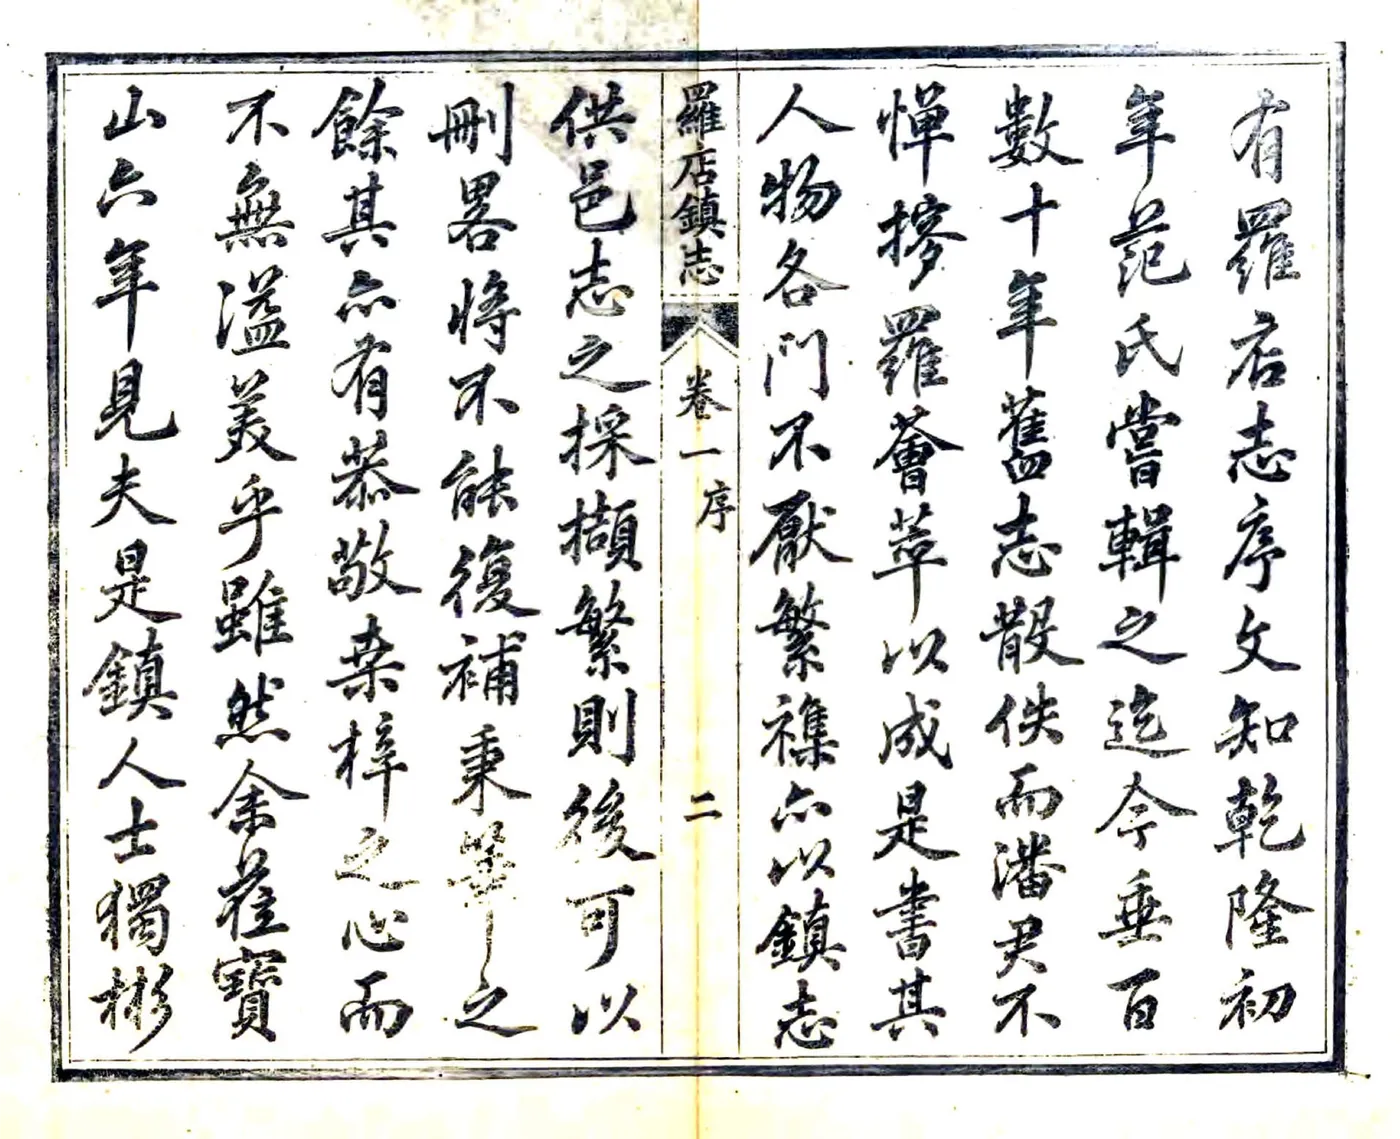 有羅店志序文知乾隆初
年范氏嘗輯之迄今垂百
數十年舊志散佚而潘君不
憚搜羅薈萃以成是書其
人物各門不厭繁襍亦以鎮志
羅店鎮志 卷一 序 二
供邑志之採擷繁則後可以
刪畧將不能復補秉筆之
餘其亦有恭敬桑梓之心而
不無溢美乎雖然余蒞寶
山六年見夫是鎮人士獨彬